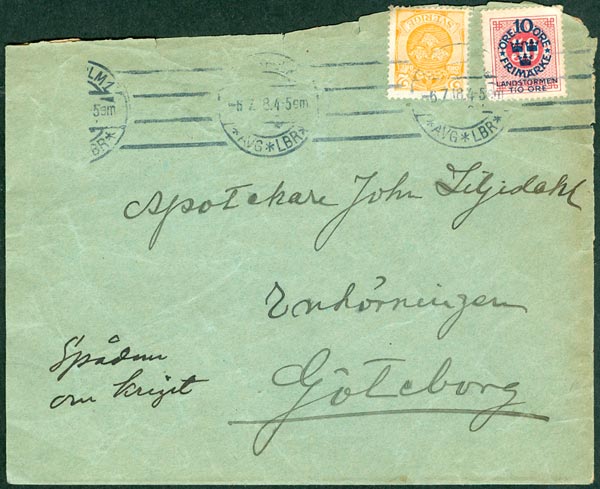 10
ÖRE ÖRE
FRIMÄRKE
LANDSTORMEN
TIO ÖRE
-6.7.18.4-5em
*AVG*LBR*
-6.7.18.4-5em
*AVG*LBR*
Apotekare John Liljedahl
Enhörningen
Göteborg
Spådom
om kriget